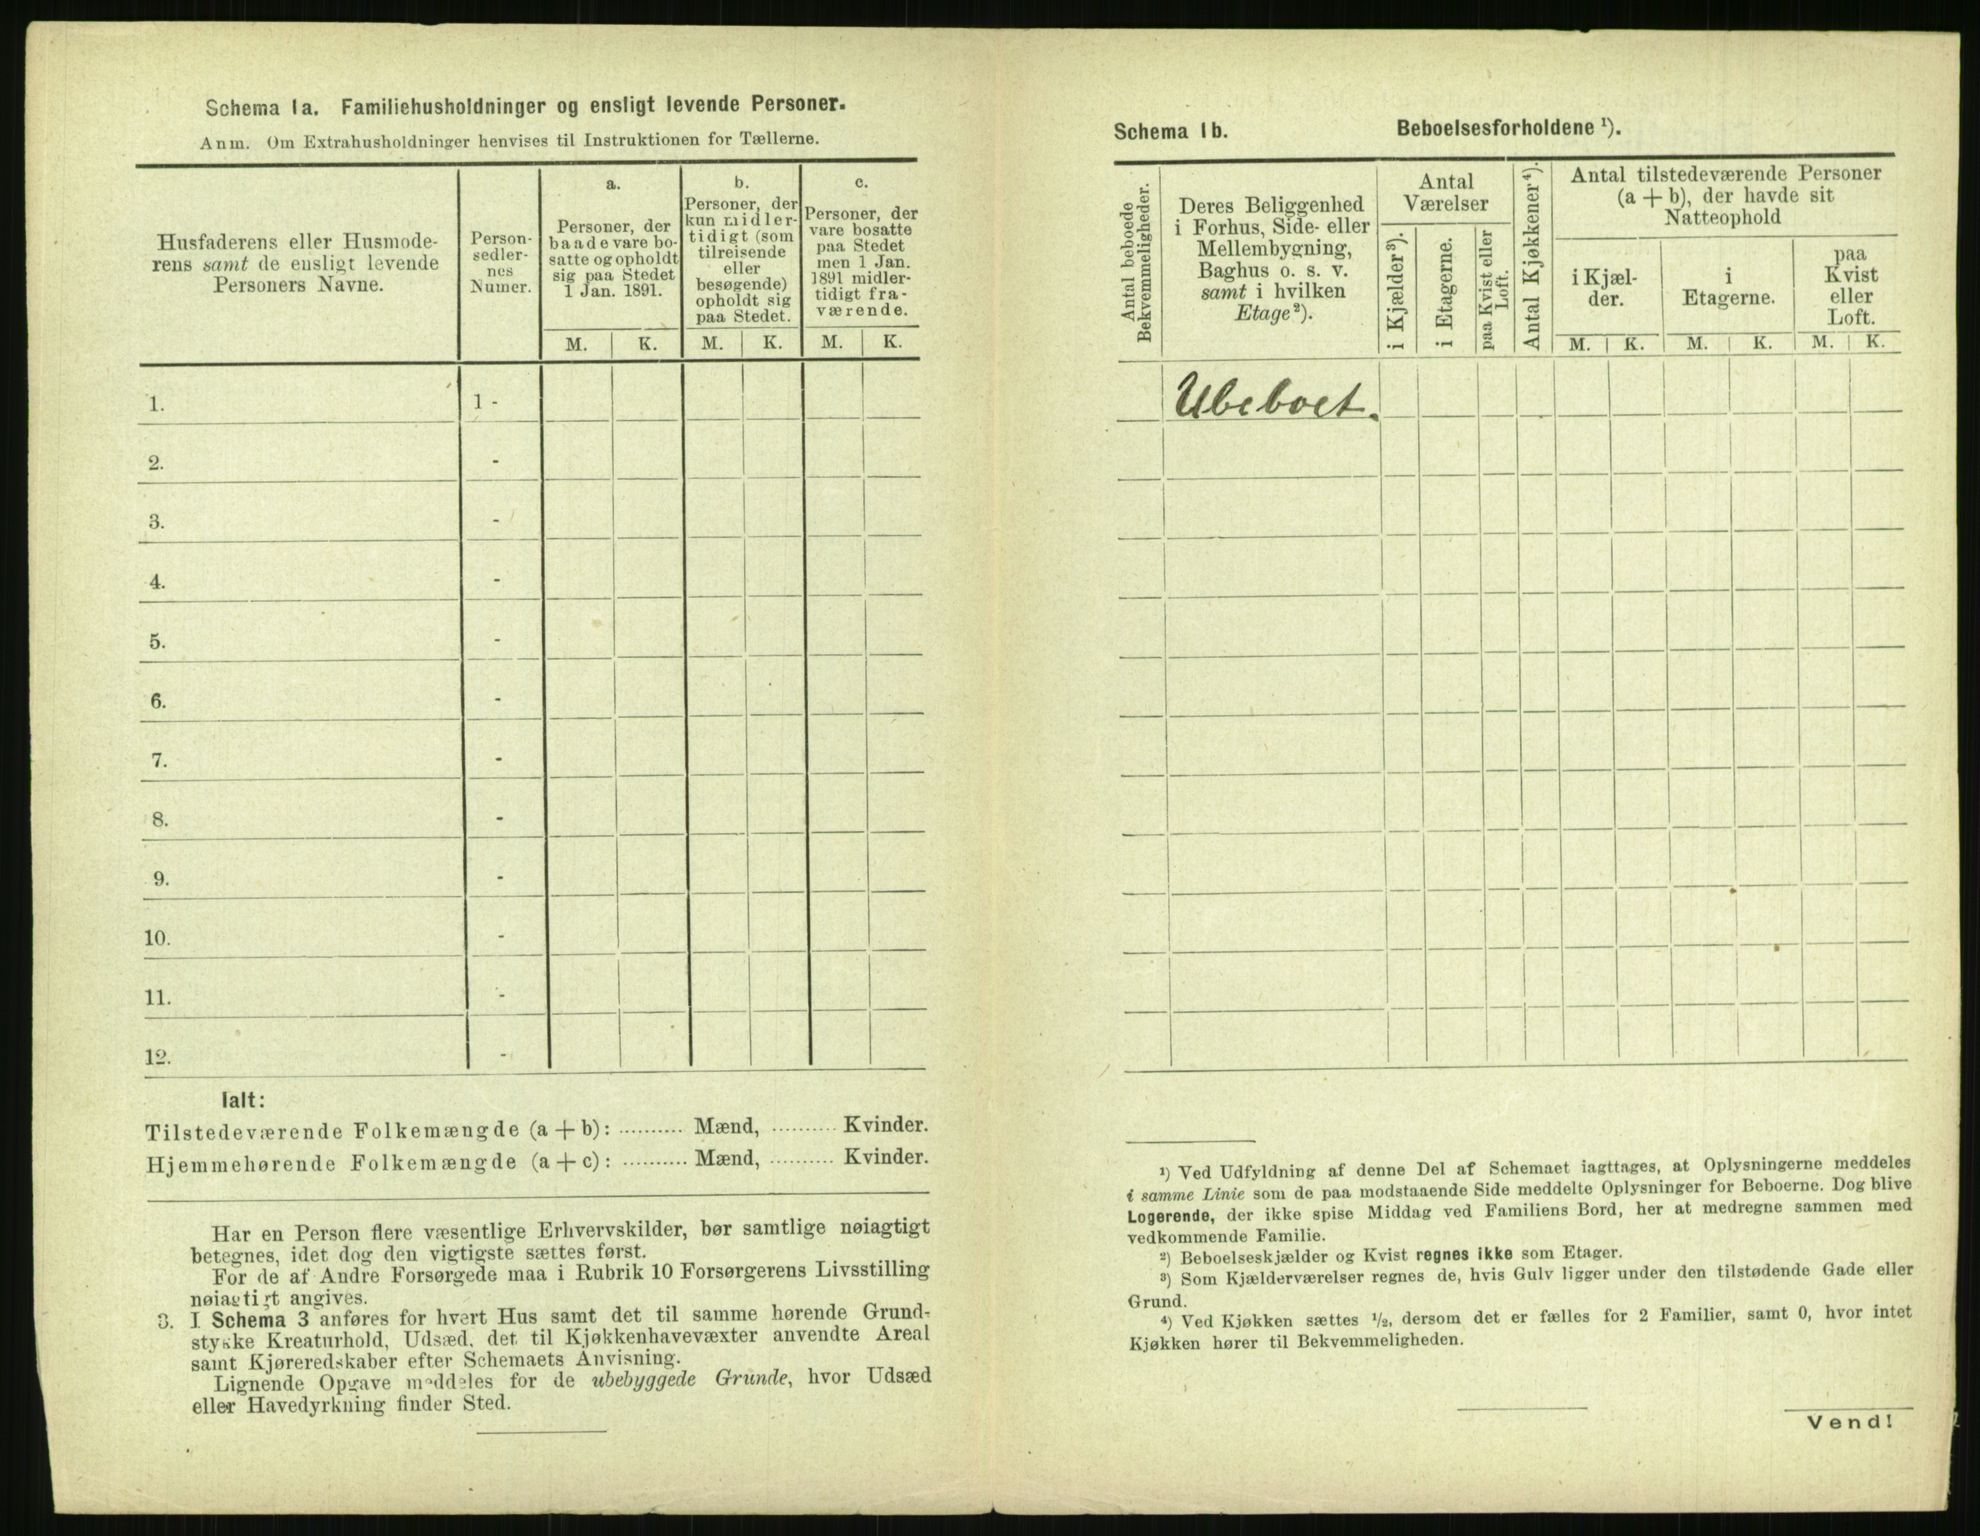 Schema 1a. Familiehusholdninger og ensligt levende Personer.
Anm. Om Extrahusholdninger henvises til Instruktionen for Tællerne.
Husfaderens eller Husmode-
rens samt de ensligt levende
Personers Navne.
Person-
sedler-
nes
Numer.
a.
Personer, der
baade vare bo-
satte og opholdt
sig paa Stedet
1 Jan. 1891.
b.
Personer, der
kun midler-
tidigt (som
tilreisende
eller
besøgende)
opholdt sig
paa Stedet.
c.
Personer, der
vare bosatte
paa Stedet
men 1 Jan.
1891 midler-
tidigt fra-
værende.
M. K. M. K. M. K.
1. 1 -
2. -
3. -
4. -
5. -
6. -
7. -
8. -
9. -
10. -
11. -
12. -
Ialt:
Tilstedeværende Folkemængde (a + b): .......... Mænd, .......... Kvinder.
Hjemmehørende Folkemængde (a + c): .......... Mænd, .......... Kvinder.
Har en Person flere væsentlige Erhvervskilder, bør samtlige nøiagtigt
betegnes, idet dog den vigtigste sættes først.
For de af Andre Forsørgede maa i Rubrik 10 Forsørgerens Livsstilling
nøiagtigt angives.
3. I Schema 3 anføres for hvert Hus samt det til samme hørende Grund-
stykke Kreaturhold, Udsæd, det til Kjøkkenhavevæxter anvendte Areal
samt Kjøreredskaber efter Schemaets Anvisning.
Lignende Opgave meddeles for de ubebyggede Grunde, hvor Udsæd
eller Havedyrkning finder Sted.
Schema 1b. Beboelsesforholdene ¹).
Antal beboede
Bekvemmeligheder.
Deres Beliggenhed
i Forhus, Side- eller
Mellembygning,
Baghus o. s. v.
samt i hvilken
Etage ²).
Antal
Værelser
i Kjælder ³).
i Etagerne.
paa Kvist eller
Loft.
Antal Kjøkkener ⁴).
Antal tilstedeværende Personer
(a + b), der havde sit
Natteophold
i Kjæl-
der.
i
Etagerne.
paa
Kvist
eller
Loft.
M. K. M. K. M. K.
Ubeboet.
¹) Ved Udfyldning af denne Del af Schemaet iagttages, at Oplysningerne meddeles
i samme Linie som de paa modstaaende Side meddelte Oplysninger for Beboerne. Dog blive
Logerende, der ikke spise Middag ved Familiens Bord, her at medregne sammen med
vedkommende Familie.
²) Beboelseskjælder og Kvist regnes ikke som Etager.
³) Som Kjælderværelser regnes de, hvis Gulv ligger under den tilstødende Gade eller
Grund.
⁴) Ved Kjøkken sættes ½, dersom det er fælles for 2 Familier, samt 0, hvor intet
Kjøkken hører til Bekvemmeligheden.
Vend!